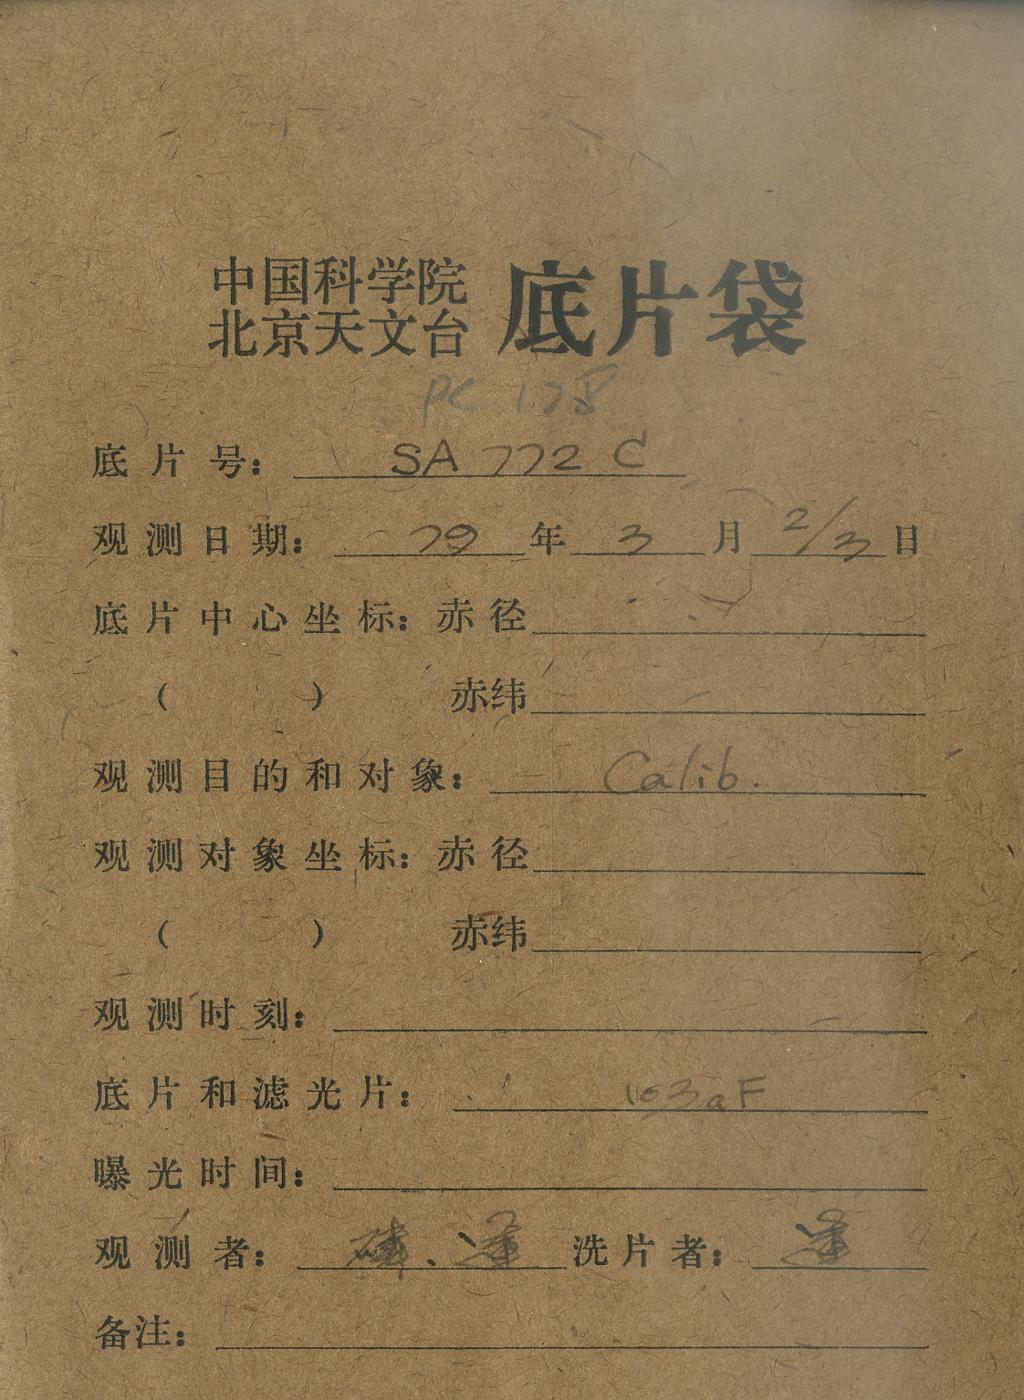 中国科学院
北京天文台 底片袋
PC 178
底片号: SA 772 C
观测日期: 79年 3月 2/3日
底片中心坐标: 赤径
( ) 赤纬
观测目的和对象: Calib.
观测对象坐标: 赤径
( ) 赤纬
观测时刻:
底片和滤光片: 103aF
曝光时间:
观测者: 洗片者:
备注: